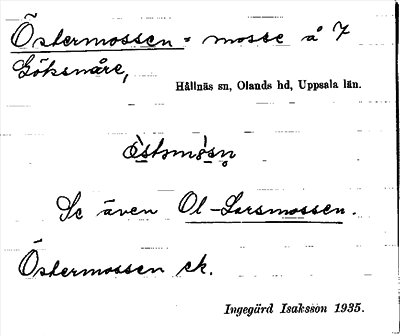 Östermossen = mosse å 7
Göksnåre,
Hållnäs sn, Olands hd, Uppsala län.
Se även Ol-Larsmossen.
Östermossen ek.
Ingegärd Isaksson 1935.